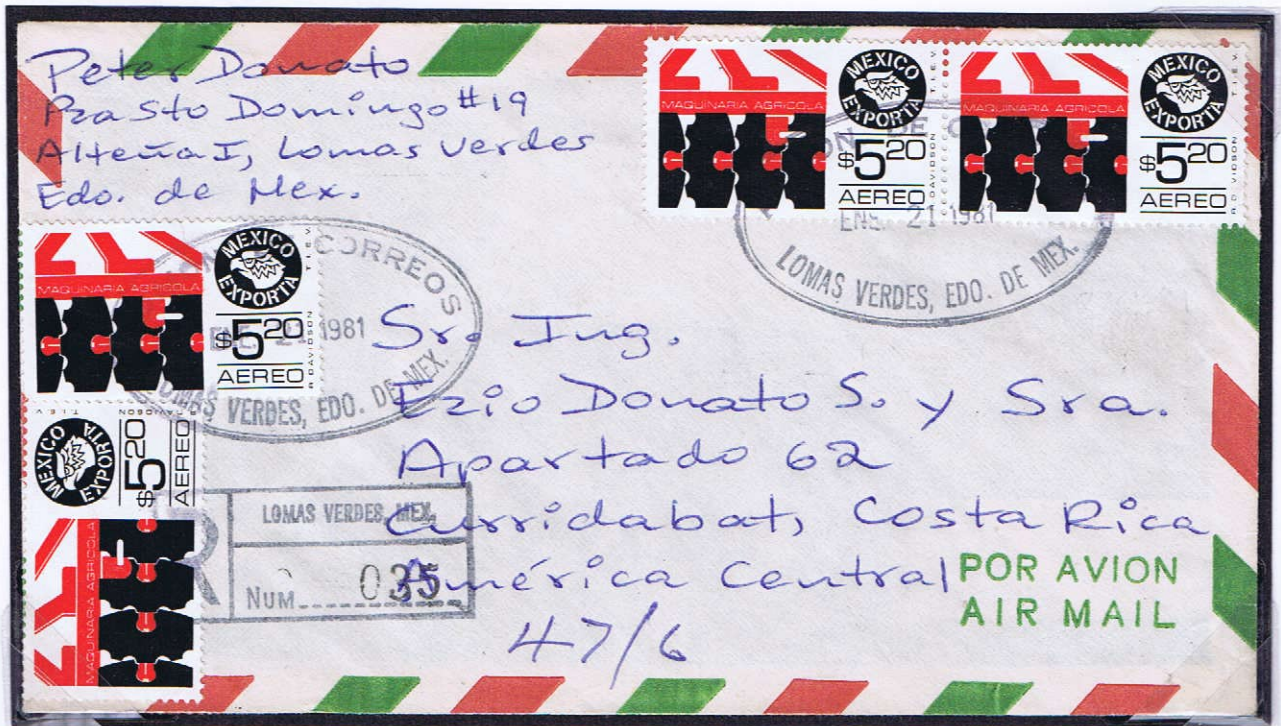 Peter Donato
Pza Sto Domingo #19
Alteña I, Lomas Verdes
Edo. de Mex.
MAQUINARIA AGRICOLA
MEXICO EXPORTA
T.I.E.V.
$5.20
AEREO
DAVIDSON
MAQUINARIA AGRICOLA
MEXICO EXPORTA
T.I.E.V.
$5.20
AEREO
R. DAVIDSON
ON DE C
ENE 21 1981
LOMAS VERDES, EDO. DE MEX.
MAQUINARIA AGRICOLA
MEXICO EXPORTA
T.I.E.V.
$5.20
AEREO
R. DAVIDSON
CORREOS
ENE. 21 1981
LOMAS VERDES, EDO. DE MEX.
MAQUINARIA AGRICOLA
MEXICO EXPORTA
T.I.E.V.
$5.20
AEREO
DAVIDSON
Sr. Ing.
Ezio Donato S. y Sra.
Apartado 62
Curridabat, Costa Rica
América Central
47/6
R
LOMAS VERDES, MEX.
NUM 035
POR AVION
AIR MAIL